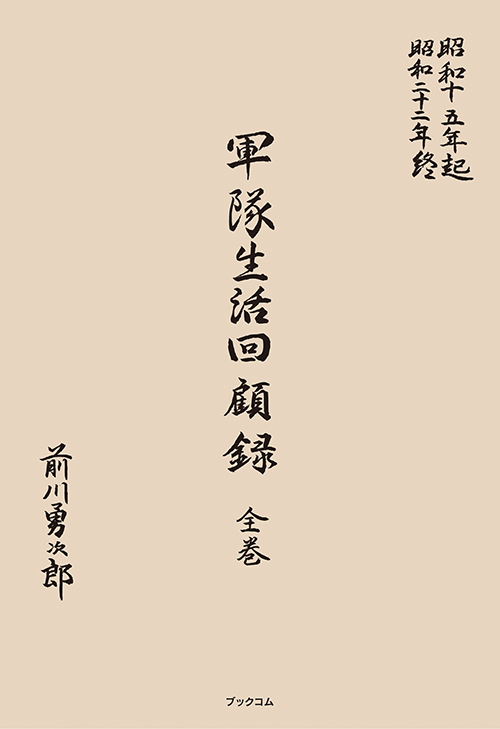 昭和十五年起
昭和二十二年終
軍隊生活回顧録 全巻
前川勇次郎
ブックコム